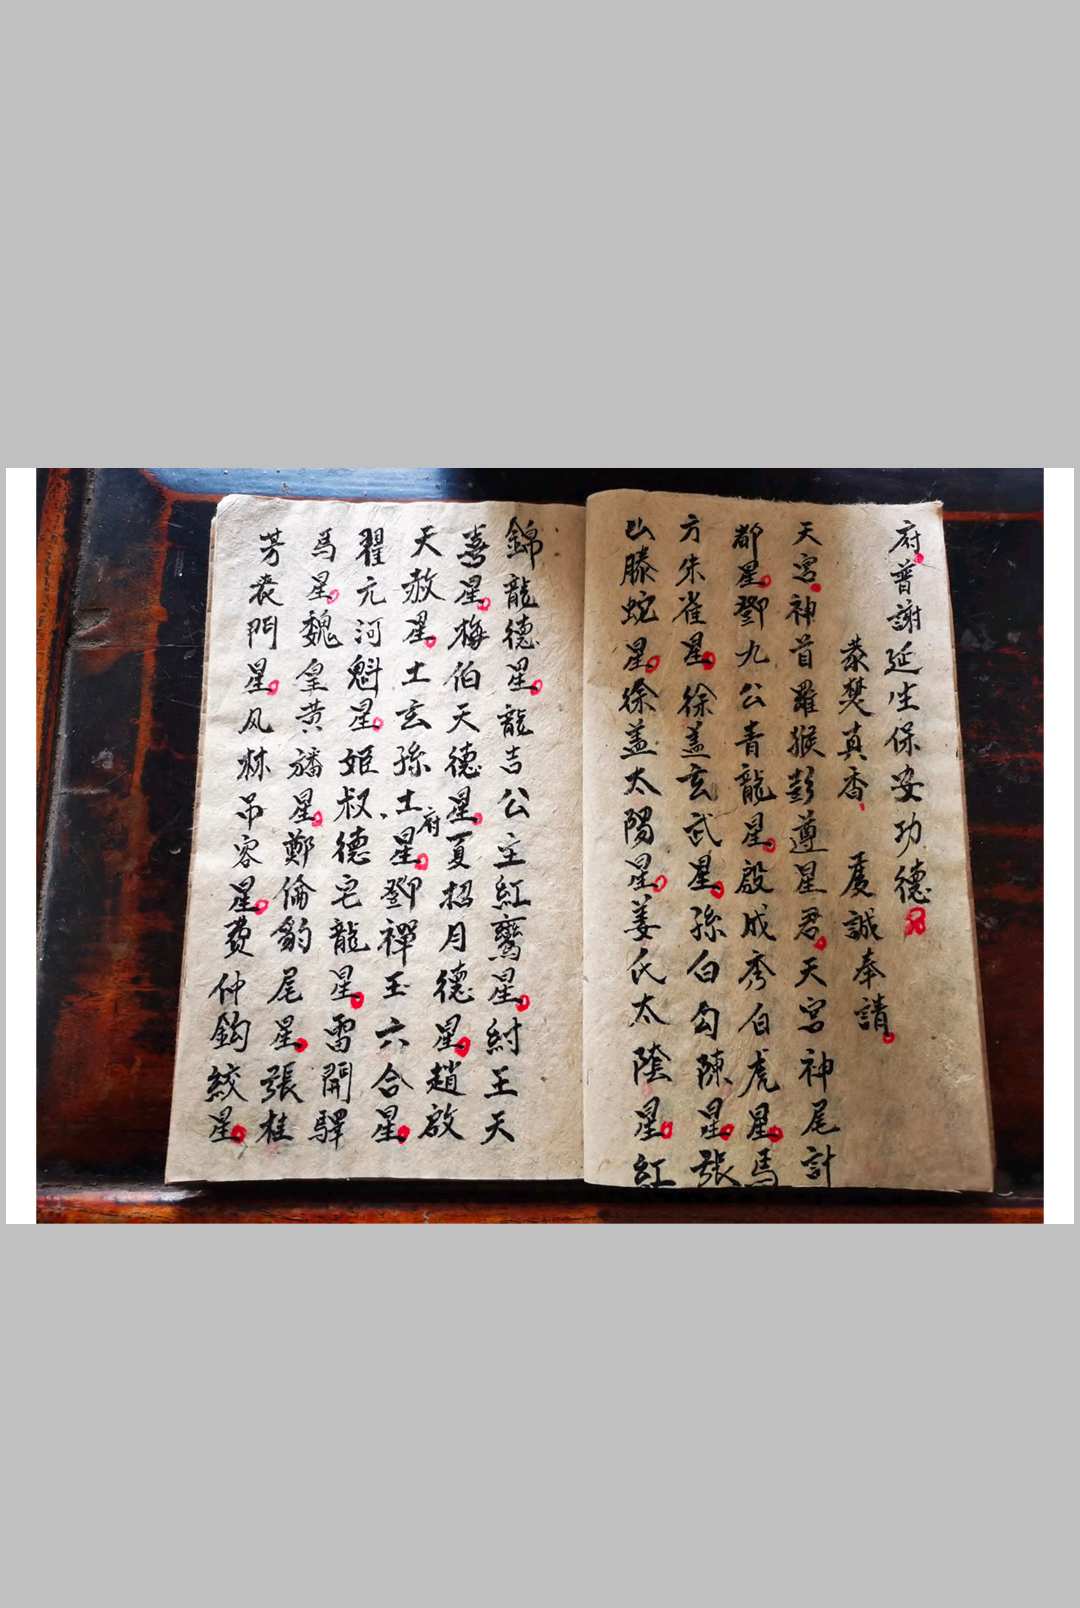 府普謝延生保安功德
恭焚真香 虔誠奉請
天宮神首羅猴彭遵星君天宮神尾計
都星鄧九公青龍星殷成秀白虎星馬
方朱雀星徐盖玄武星孫白勾陳星張
山滕蛇星徐盖太陽星姜氏太陰星紅
錦龍德星龍吉公主紅鸞星紂王天
喜星梅伯天德星夏招月德星趙啟
天赦星土玄孫土府星鄧禪玉六合星
翟元河魁星姬叔德宅龍星雷開驛
馬星魏皇黃旛星鄭倫豹尾星張桂
芳丧門星风林吊容星費仲鈎絞星